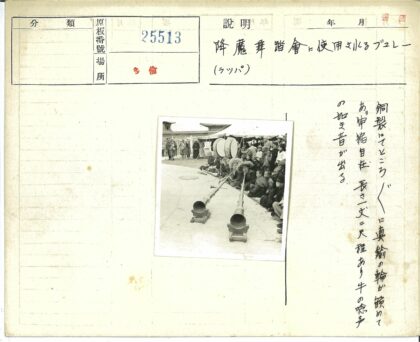 分類
原板番號
25513
場所
多倫
説明
年 月
降魔舞踏會に使用されるブユレー
(ラッパ)
銅製にてところ〴〵に真鍮の輪が嵌めて
あり 伸縮自在 長さ一丈二尺程あり牛の啼声
の如き音が出る